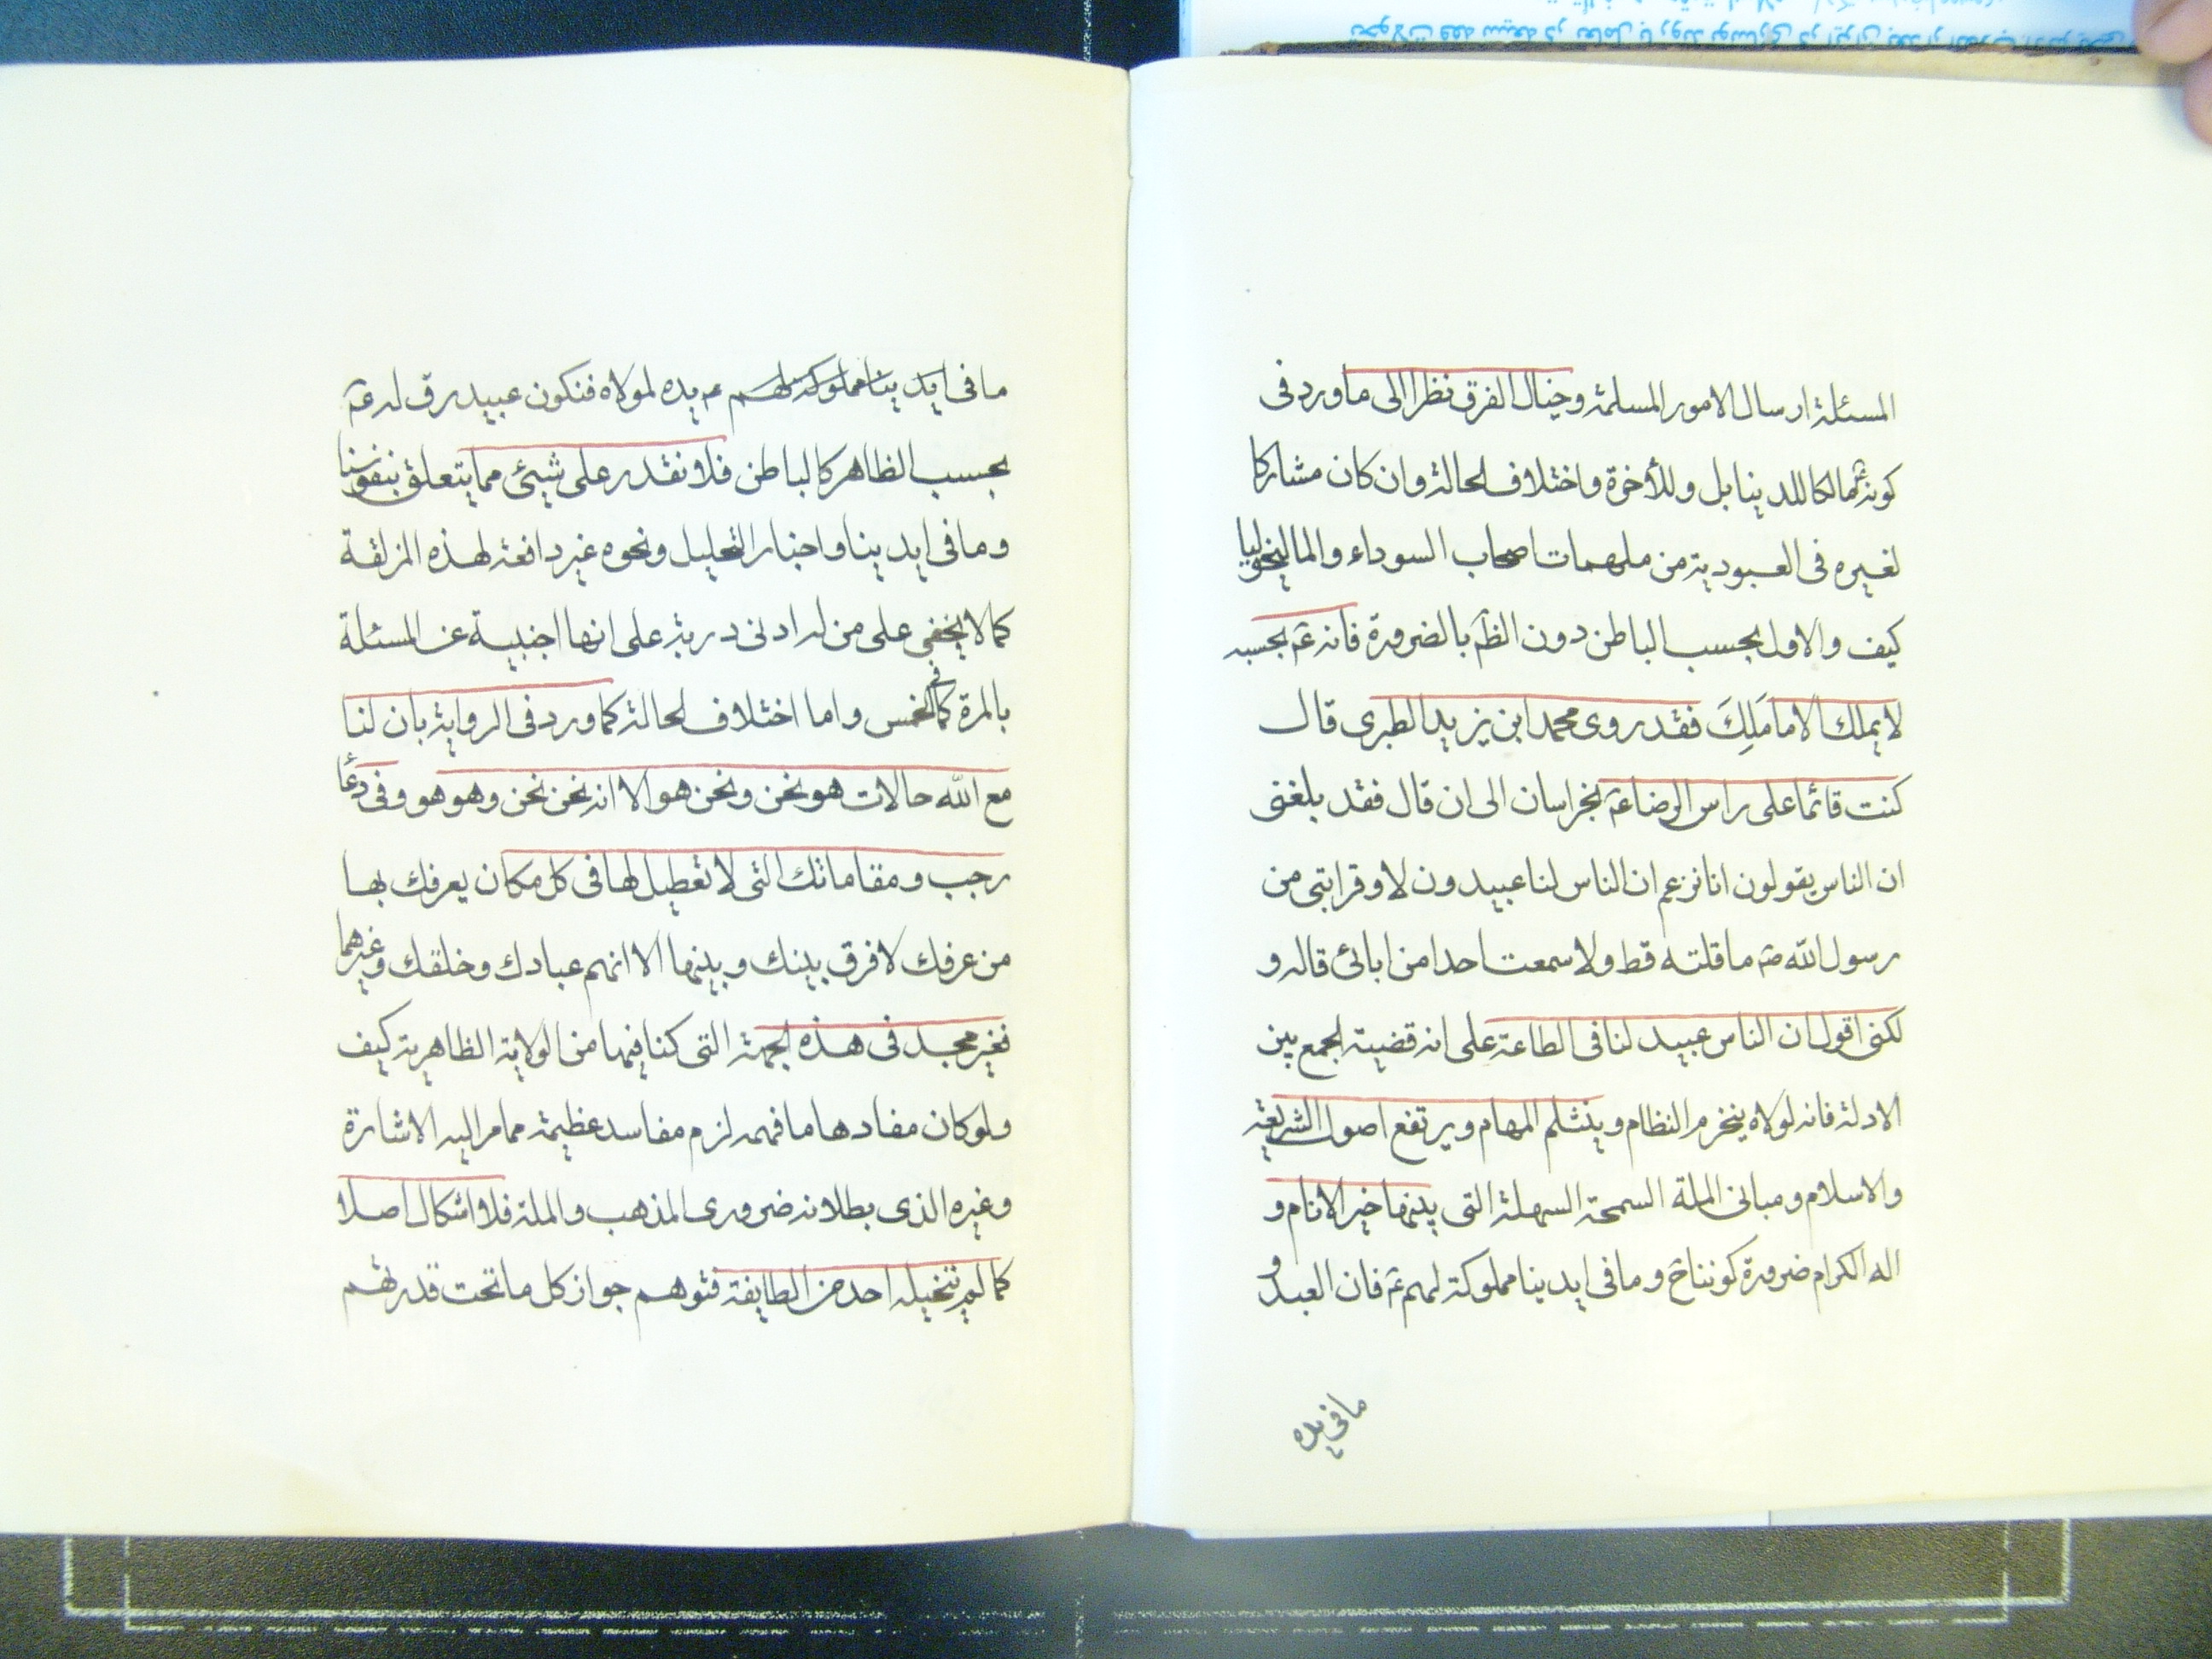 المسئلة ارسال الامور المسلمة وخيال الفرق نظرا الى ما ورد فى
كونه مالكا للدينا بل وللأخرة واختلاف لحالة وان كان مشاركا
لغيره فى العبودية من ملهمات اصحاب السوداء والماليخوليا
كيف والاول بحسب الباطن دون الظم بالضرورة فانه عم بحسبه
لا يملك الا ما مَلِكَ فقد روى محمد ابن يزيد الطبرى قال
كنت قائما على راس الرضا عم بخراسان الى ان قال فقد بلغنى
ان الناس يقولون انا نزعم ان الناس لنا عبيد ون لا وقرابتى من
رسول الله صم ما قلته قط ولا سمعت احدا من ابائى قاله و
لكنى اقول ان الناس عبيد لنا فى الطاعة على انه قضية لجمع بين
الادلة فانه لولاه ينخرم النظام وينثلم المهام ويرتفع اصول الشريعة
والاسلام ومبانى الملة السمحة السهلة التى بينها خير الانام و
اله الكرام ضرورة كوننا ح وما فى ايدينا مملوكة لهم عم فان العبد و
ما فى يده
ما فى ايدينا مملوكة لهم عم يده لمولاه فنكون عبيد رق له عم
بحسب الظاهر كالباطن فلا نقدر على شيئ مما يتعلق بنفوسنا
وما فى ايدينا واخبار التحليل ونحوه غير دافعة لهذه المزلقة
كما لا يخفى على من له ادنى دربة على انها اجنبية عن المسئلة
بالمرة كما فى لخمس واما اختلاف لحالة كما ورد فى الرواية بان لنا
مع الله حالات هو نحن ونحن هو الا انه نحن نحن وهو هو وفى دعأ
رجب ومقاماتك التى لا تعطيل لها فى كل مكان يعرفك بها
من عرفك لا فرق بينك وبينها الا انهم عبادك وخلقك وغيرهما
فغير مجد فى هذه لجهة التى كنا فيها من الولاية الظاهرية كيف
ولو كان مفادها ما فهمه لزم مفاسد عظيمة مما مر اليه الاشارة
وغيره الذى بطلانه ضرورى المذهب والملة فلا اشكال اصلا
كما لم يتخيله احد من الطايفة فتوهم جواز كل ما تحت قدرتهم